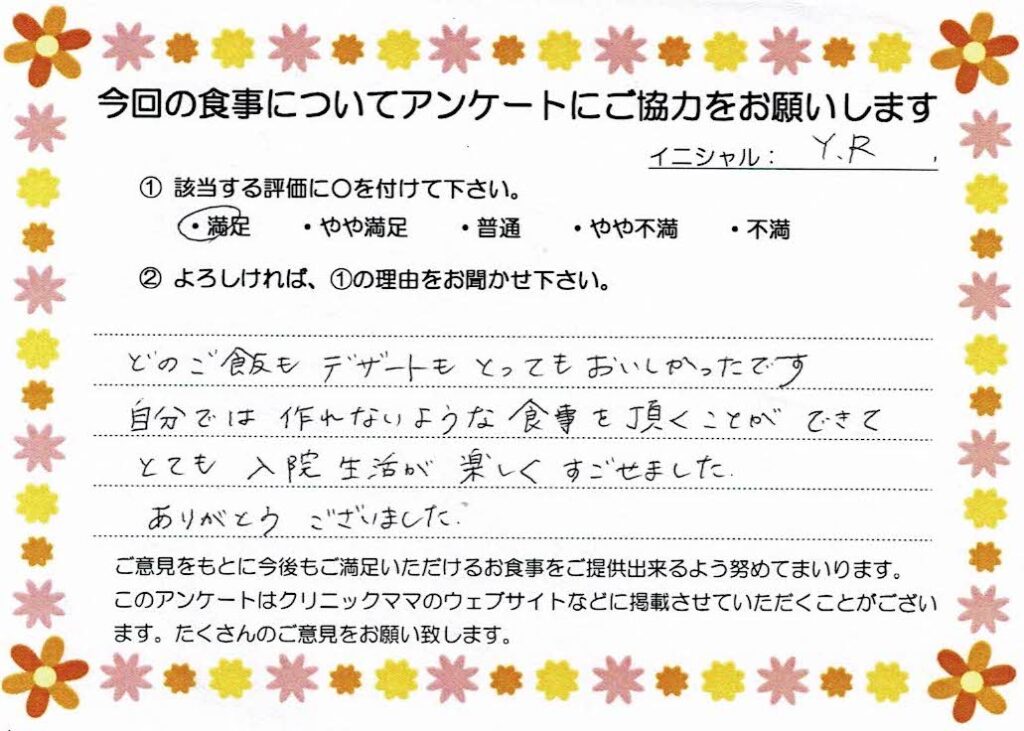 今回の食事についてアンケートにご協力をお願いします
イニシャル： Y.R
① 該当する評価に〇を付けて下さい。
・満足 ・やや満足 ・普通 ・やや不満 ・不満
② よろしければ、①の理由をお聞かせ下さい。
どのご飯も デザートも とっても おいしかったです
自分では 作れないような 食事を 頂くことが できて
とても 入院生活が 楽しく すごせました.
ありがとう ございました.
ご意見をもとに今後もご満足いただけるお食事をご提供出来るよう努めてまいります。
このアンケートはクリニックママのウェブサイトなどに掲載させていただくことがござい
ます。たくさんのご意見をお願い致します。